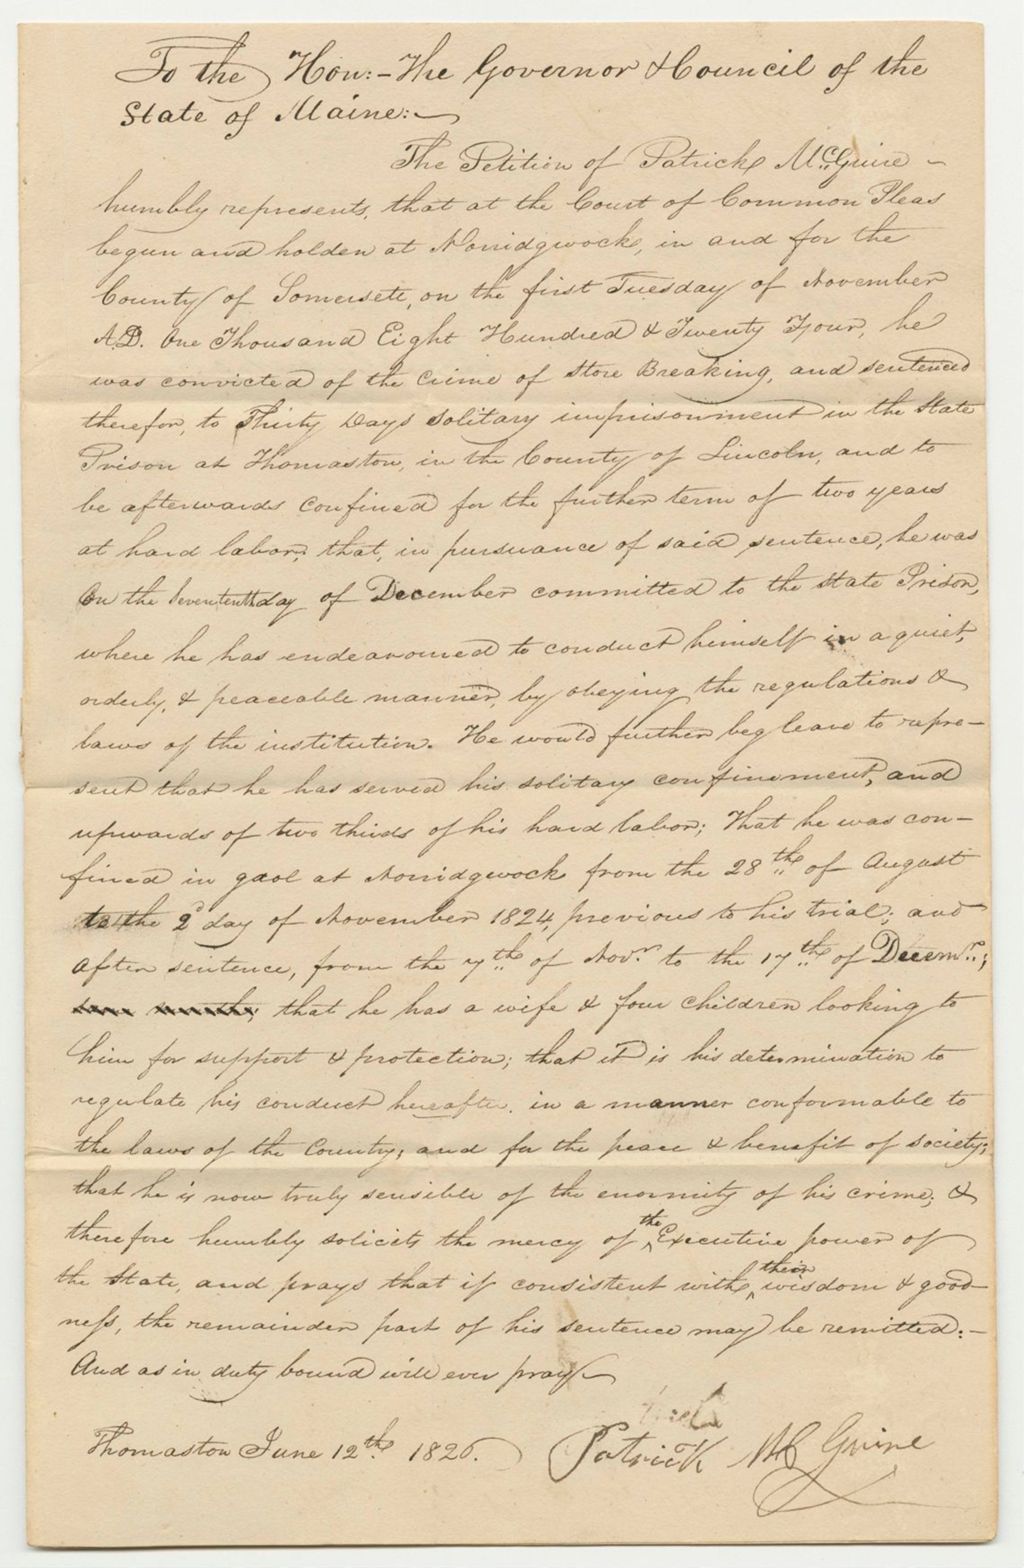 To the Hon:- The Governor & Council of the
State of Maine:-
The Petition of Patrick McGuire -
humbly represents, that at the Court of Common Pleas
begun and holden at Norridgwock, in and for the
County of Somersett, on the first Tuesday of November
A.D. One Thousand Eight Hundred & Twenty Four, he
was convicted of the crime of Store Breaking, and sentenced
therefor, to Thirty Days Solitary imprisonment in the State
Prison at Thomaston, in the County of Lincoln, and to
be afterwards confined for the further term of two years
at hard labor; that, in pursuance of said sentence, he was
on the Seventeenth day of December committed to the State Prison,
where he has endeavoured to conduct himself in a quiet,
orderly, & peaceable manner, by obeying the regulations &
laws of the institution. He would further beg leave to repre-
sent that he has served his solitary confinement, and
upwards of two thirds of his hard labor; That he was con-
fined in gaol at Norridgwock from the 28th of August
to the 2d day of November 1824, previous to his trial; and
after sentence, from the 7th of Novr to the 17th of Decemr;
that he has a wife & four children looking to
him for support & protection; that it is his determination to
regulate his conduct hereafter, in a manner conformable to
the laws of the Country, and for the peace & benefit of society;
that he is now truly sensible of the enormity of his crime; &
therefore humbly solicits the mercy of the Executive power of
the State, and prays that if consistent with their wisdom & good-
ness, the remainder part of his sentence may be remitted:-
And as in duty bound will ever pray
Thomaston June 12th 1826. Patrick McGuire